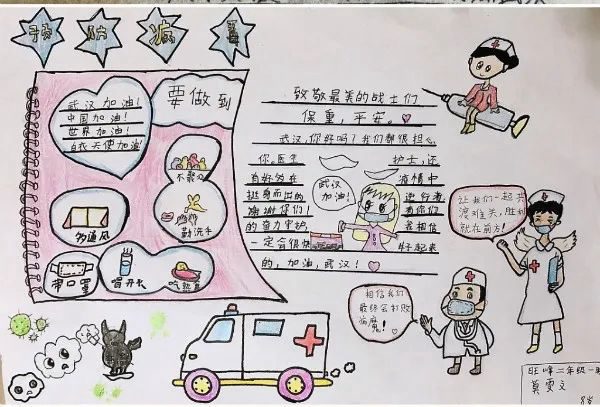 预防病毒
武汉加油!
中国加油!
世界加油!
白衣天使加油!
要做到
不聚众
多通风
勤洗手
带口罩
喝开水
吃熟食
致敬最美的战士们
保重,平安。
武汉,你好吗?我们都很担心
你,医生
护士,还
有好多在
疫情中
挺身而出的
逆行者,
谢谢你们!
有你们
的奋力守护,
我相信
一定会很快
好起来
的,加油,武汉!
武汉
加油!
让我们一起共
渡难关,胜利
就在前方!
相信我们
最终会打败
病魔!
旺峰二年级一班
莫雯文
8岁